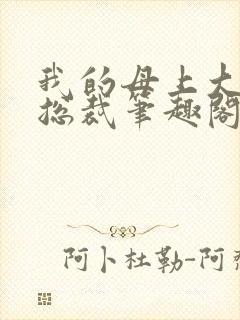 我的母上大
总裁笔趣阁
阿卜杜勒-阿